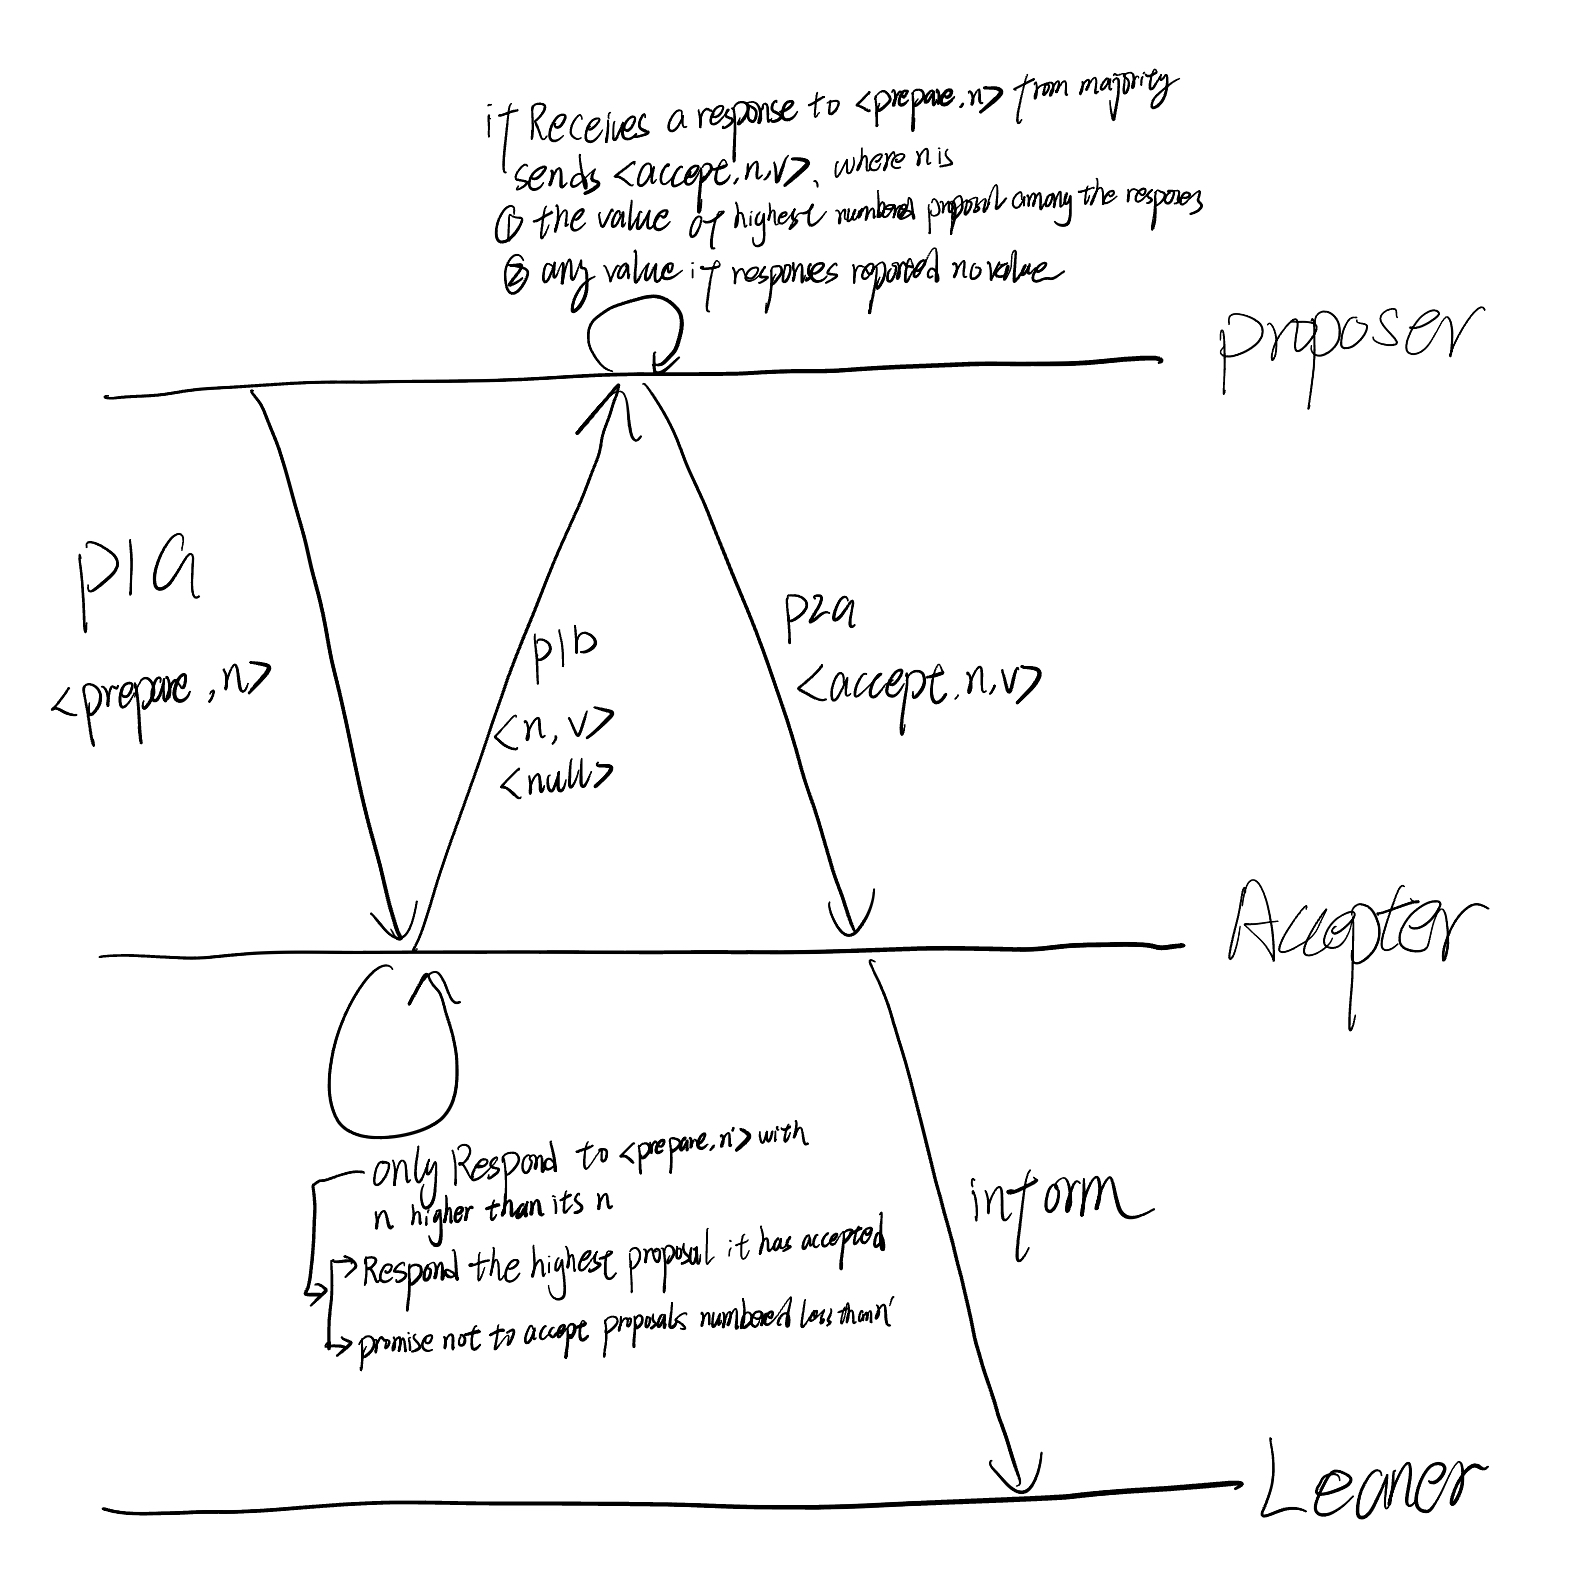 if Receives a response to <prepare,n> from majority
sends <accept,n,v>, where n is
① the value of highest numbered proposal among the responses
② any value if responses reported no value
proposer
p1a
<prepare,n>
p1b
<n,v>
<null>
p2a
<accept,n,v>
Accepter
only Respond to <prepare,n'> with
n higher than its n
Respond the highest proposal it has accepted
promise not to accept proposals numbered less than n'
inform
Leaner